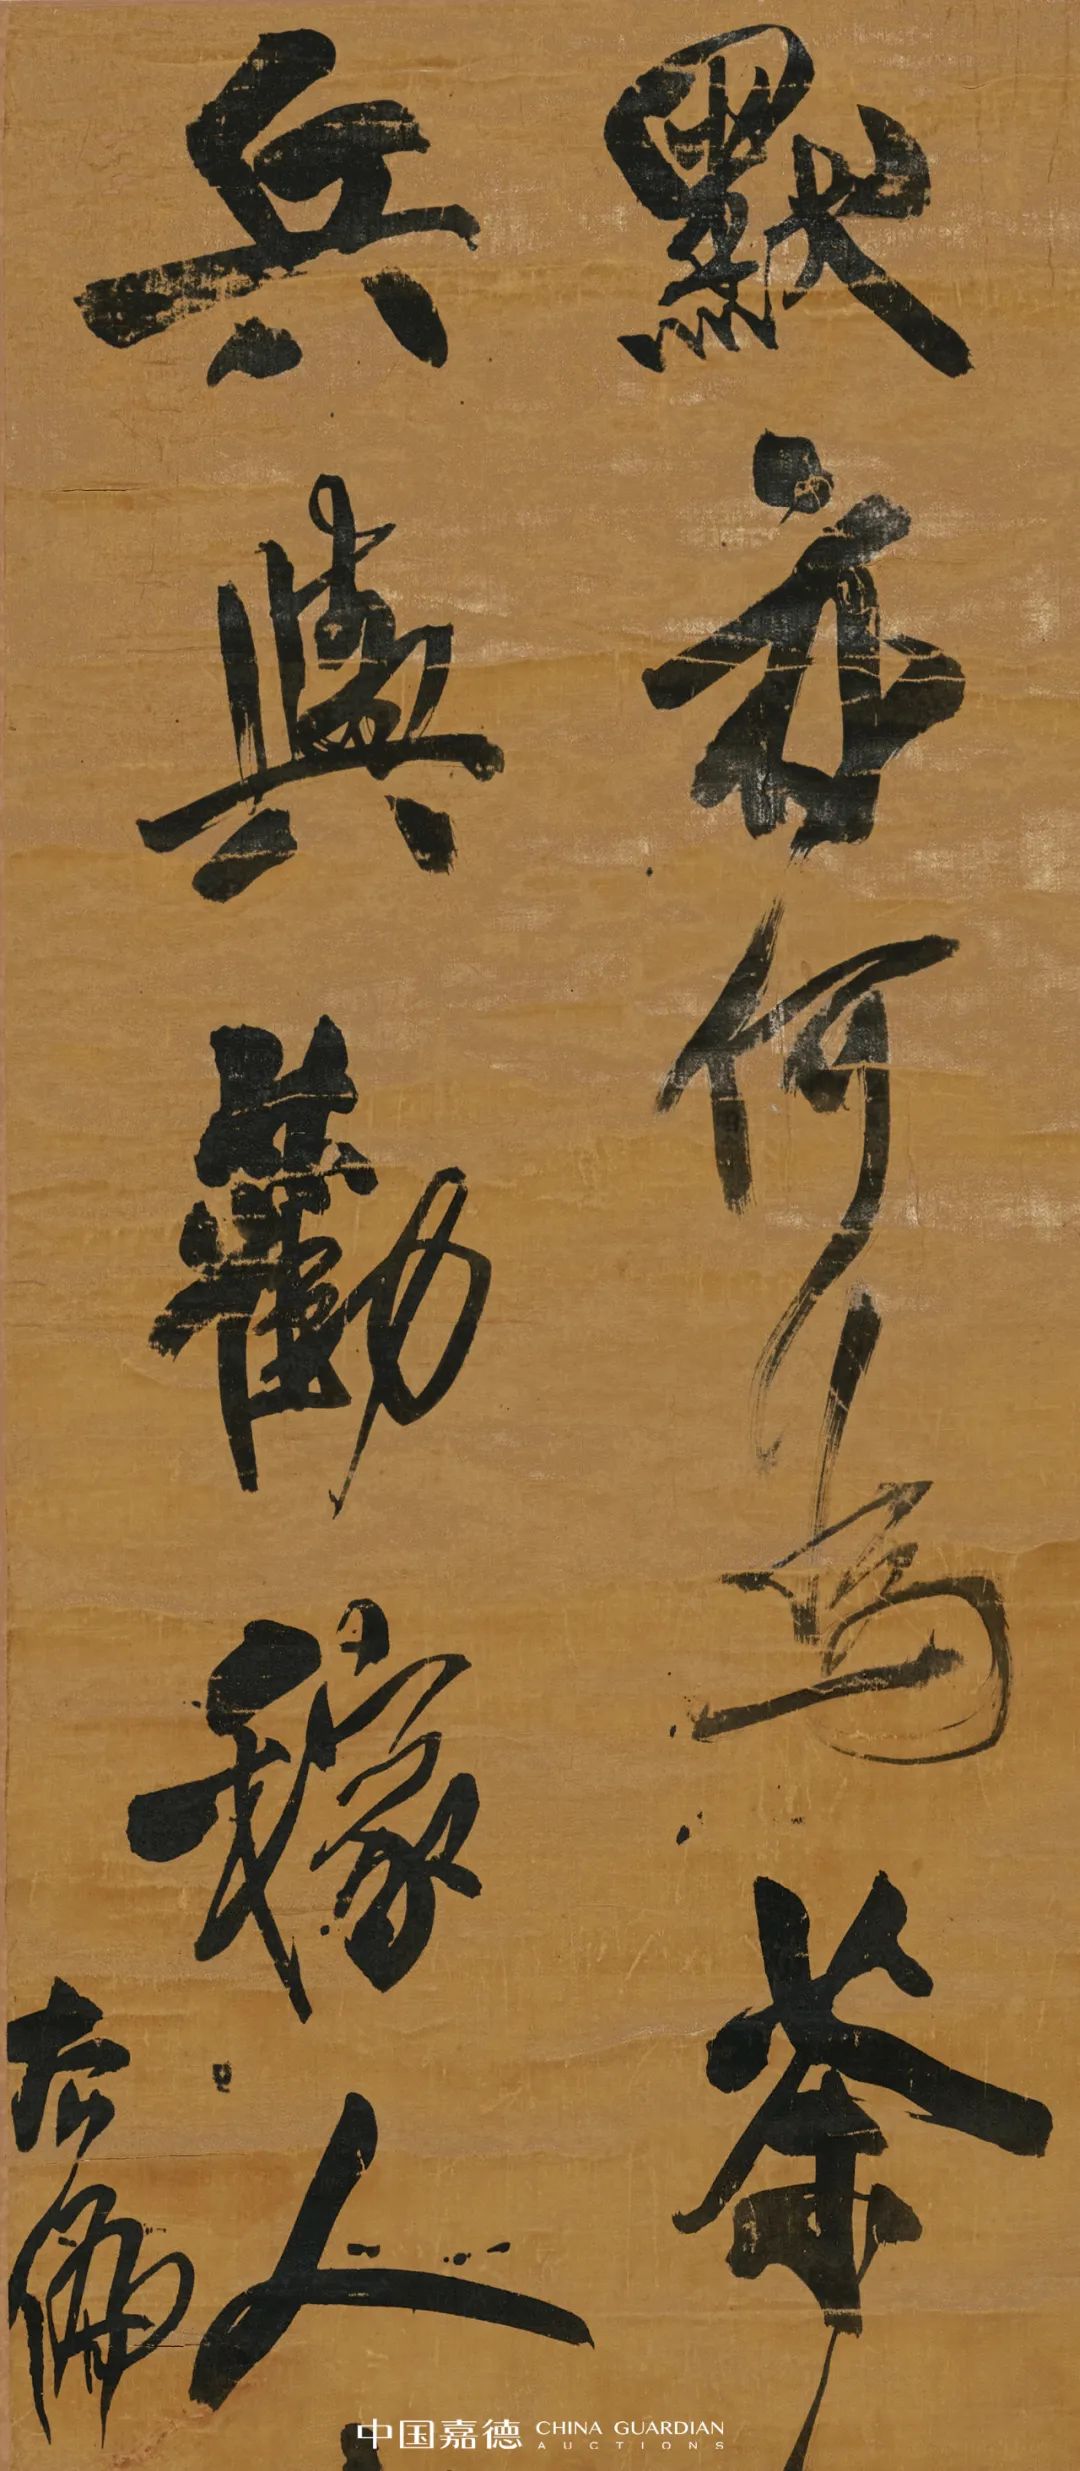 默亦何為茶
兵與勸稼人
中国嘉德 CHINA GUARDIAN AUCTIONS